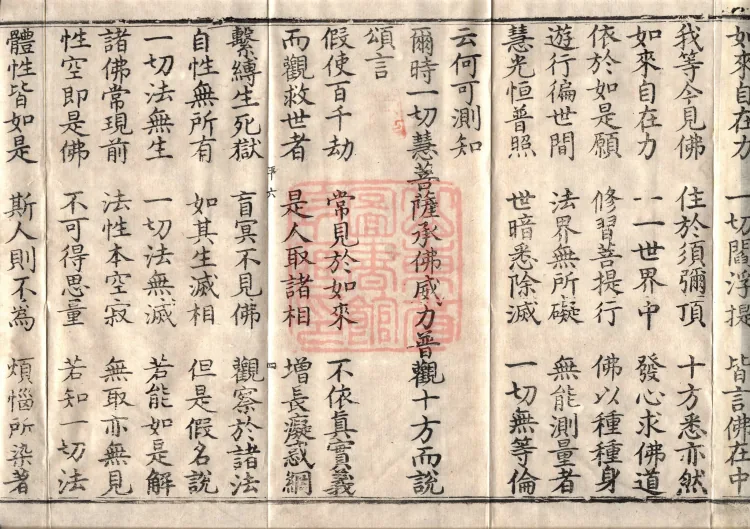 如來自在力 一切閻浮提 皆言佛在中
我等今見佛 住於須彌頂 十方悉亦然
如來自在力 一一世界中 發心求佛道
依於如是願 修習菩提行 佛以種種身
遊行徧世間 法界無所礙 無能測量者
慧光恒普照 世暗悉除滅 一切無等倫
云何可測知
爾時一切慧菩薩承佛威力普觀十方而說
頌言
假使百千劫 常見於如來 不依真實義
而觀救世者 是人取諸相 增長癡惑網
繫縛生死獄 盲冥不見佛 觀察於諸法
平六
四
自性無所有 如其生滅相 但是假名說
一切法無生 一切法無滅 若能如是解
諸佛常現前 法性本空寂 無取亦無見
性空即是佛 不可得思量 若知一切法
體性皆如是 斯人則不為 煩惱所染著